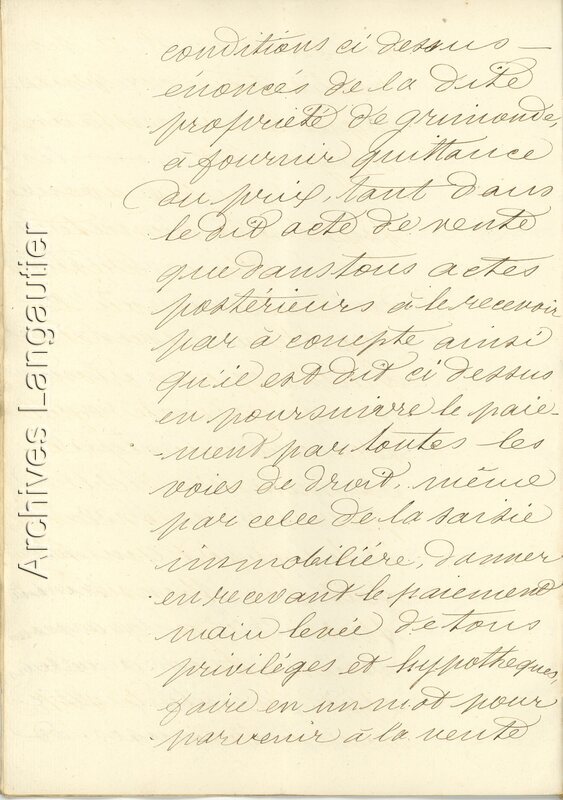 conditions ci dessus —
énoncés de la dite
propriété de grimonde,
à fournir quittance
du prix, tant dans
le dit acte de vente
que dans tous actes
postérieurs à le recevoir
par à compte ainsi
qu'il est dit ci dessus
en poursuivre le paie-
-ment par toutes les
voies de droit, même
par celle de la saisie
immobilière, donner
en recevant le paiement
main levée de tous
priviléges et hypothèques,
faire en un mot pour
parvenir à la vente
Archives Langautier